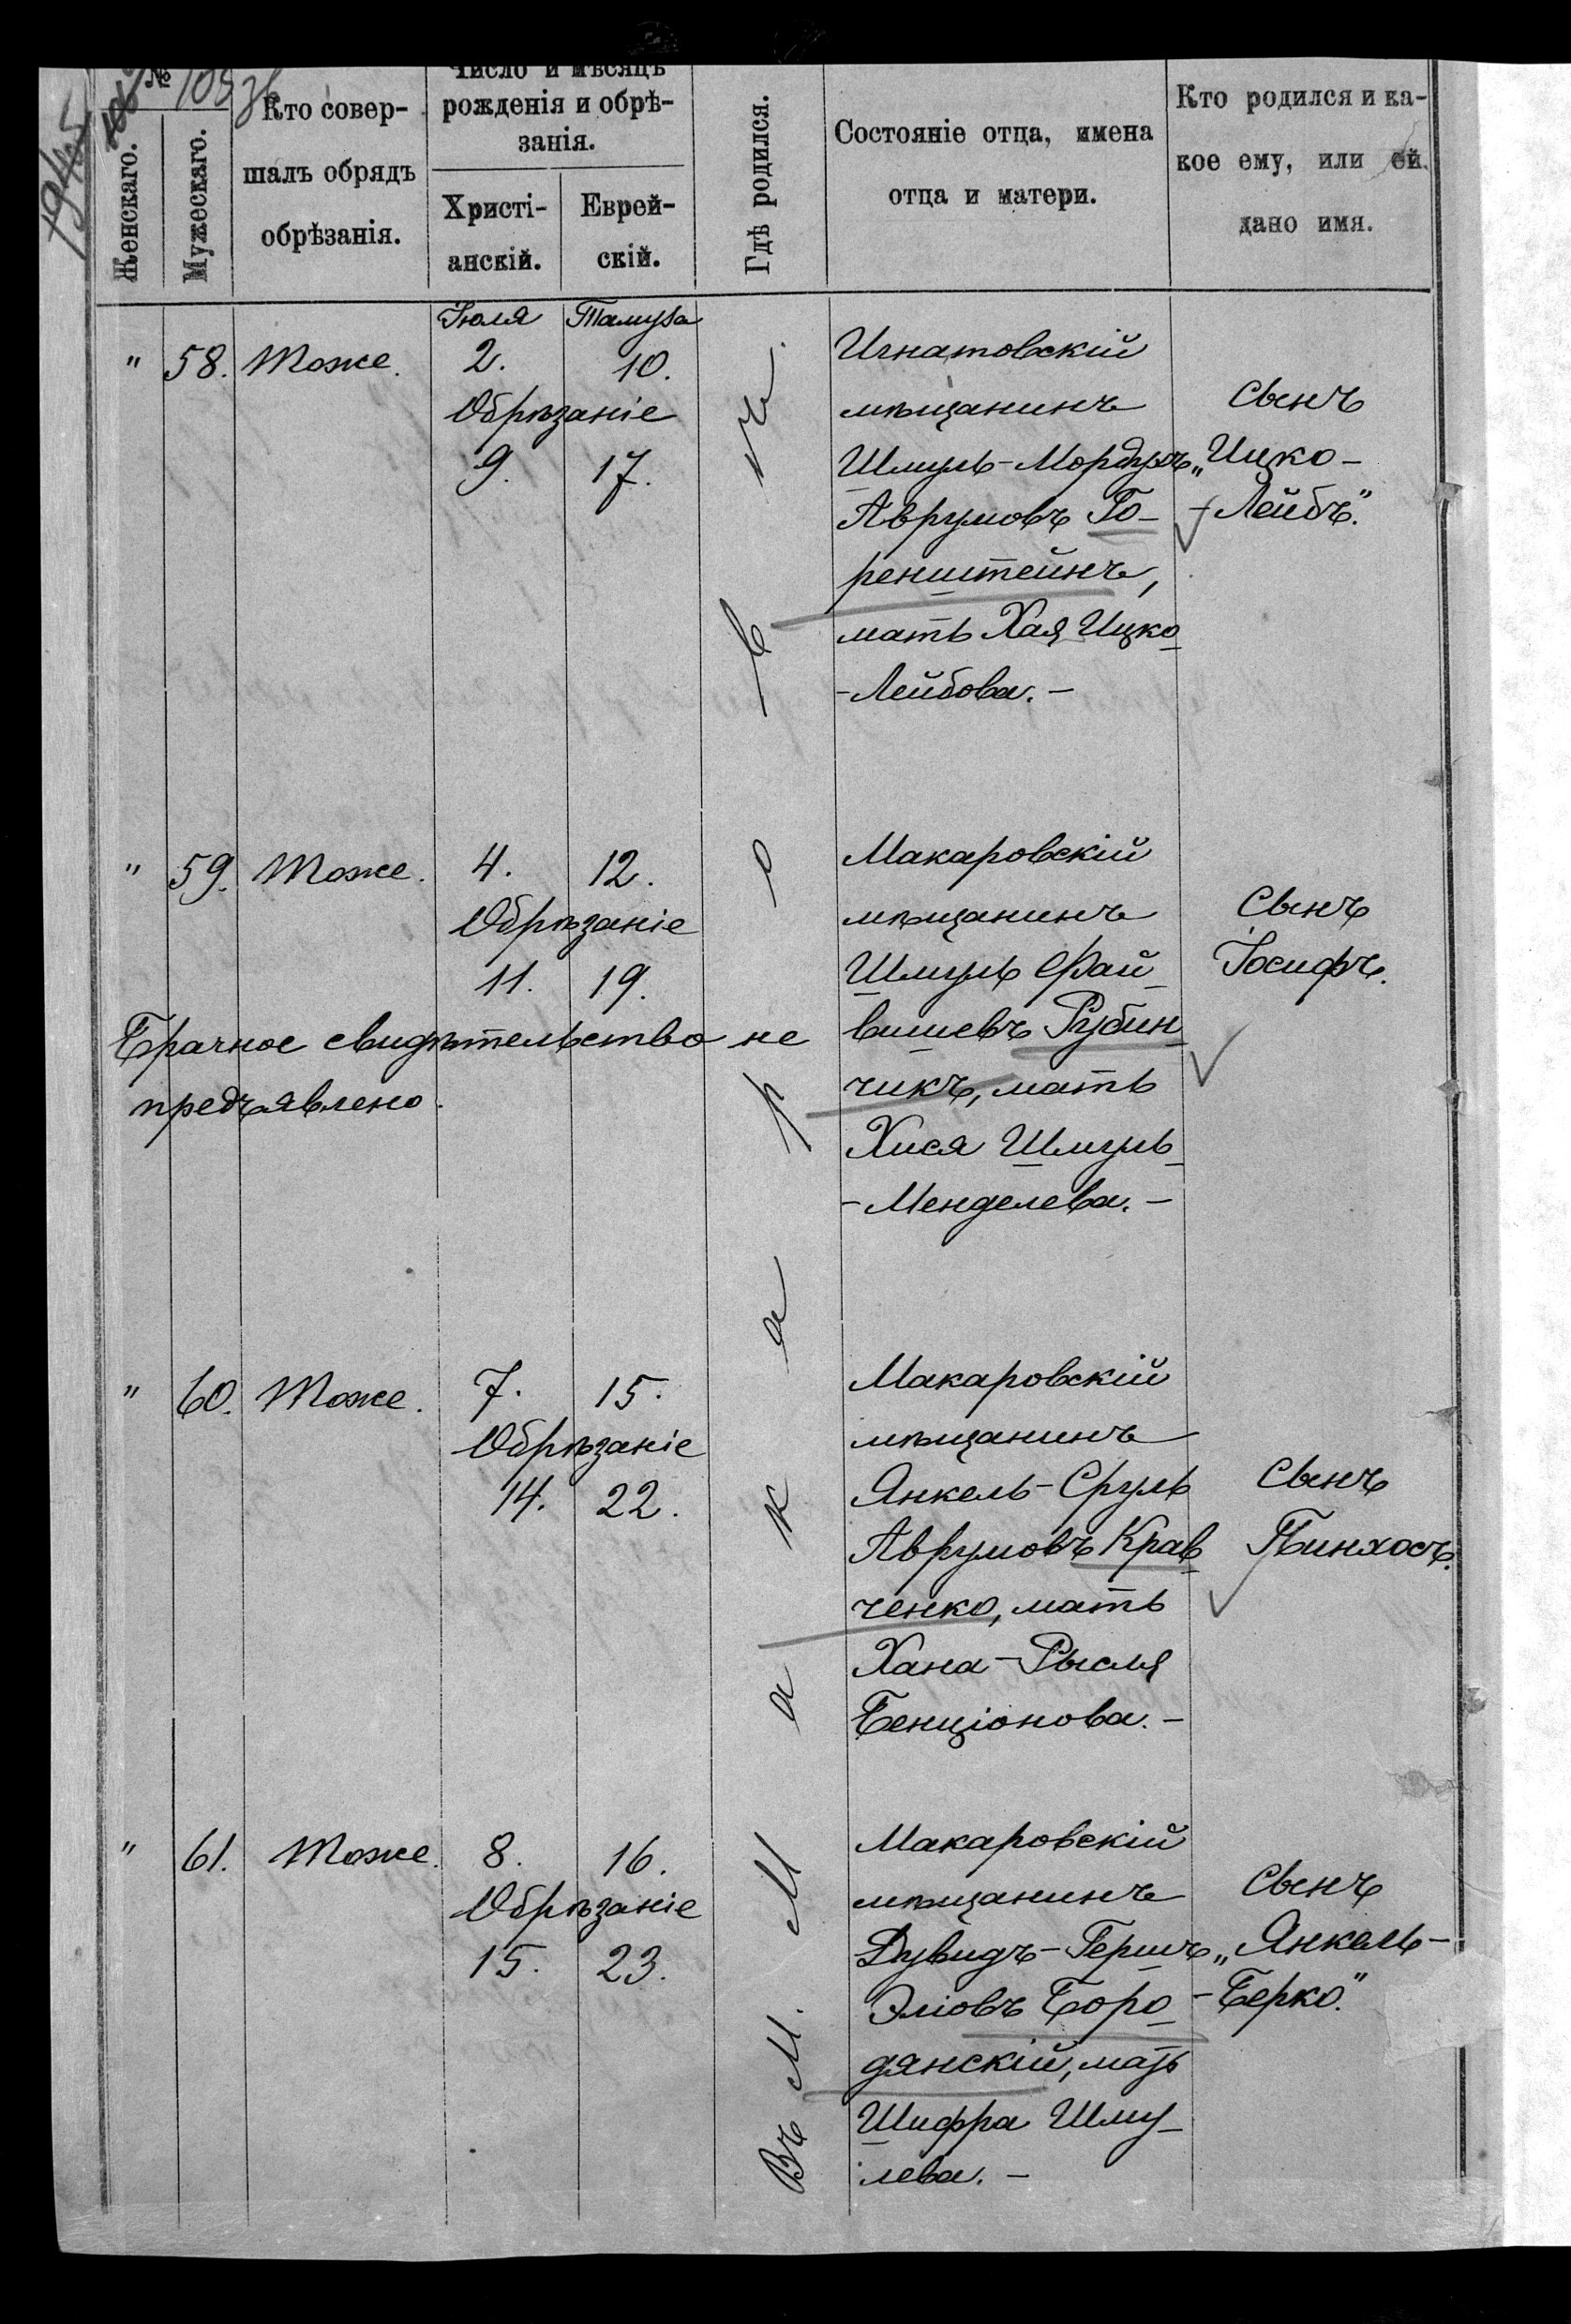 №
Женскаго.
Мужескаго.
Кто совер-
шалъ обрядъ
обрѣзанія.
Число и мѣсяцъ
рожденія и обрѣ-
занія.
Христі-
анскій.
Еврей-
скій.
Гдѣ родился.
Состояніе отца, имена
отца и матери.
Кто родился и ка-
кое ему, или ей
дано имя.
Въ М. Макаровъ.
" 58. Тоже.
Іюля Тамуза
2. 10.
Обрѣзаніе
9. 17.
Игнатовскій
мѣщанинъ
Шмуль-Мордухъ
Аврумовъ Го-
ренштейнъ,
мать Хая Ицко
-Лейбова.-
Сынъ
„Ицко-
-Лейбъ."
" 59. Тоже.
4. 12.
Обрѣзаніе
11. 19.
Брачное свидѣтельство не
предъявлено.
Макаровскій
мѣщанинъ
Шмуль Фай-
вишевъ Рубин-
чикъ, мать
Хися Шмуль-
-Менделева.-
Сынъ
Іосифъ.
" 60. Тоже.
7. 15.
Обрѣзаніе
14. 22.
Макаровскій
мѣщанинъ
Янкель-Сруль
Аврумовъ Крав-
ченко, мать
Хана-Рысля
Бенціонова.-
Сынъ
Пинхосъ.
" 61. Тоже.
8. 16.
Обрѣзаніе
15. 23.
Макаровскій
мѣщанинъ
Дувидъ-Гершъ
Эліовъ Боро-
дянскій, мать
Шифра Шму-
лева.-
Сынъ
„Янкель-
-Берко."